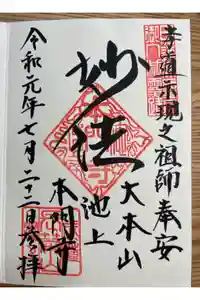 孝道示現之祖師奉安
大本山
妙法
池上
本門寺
令和元年七月二十二日参拝